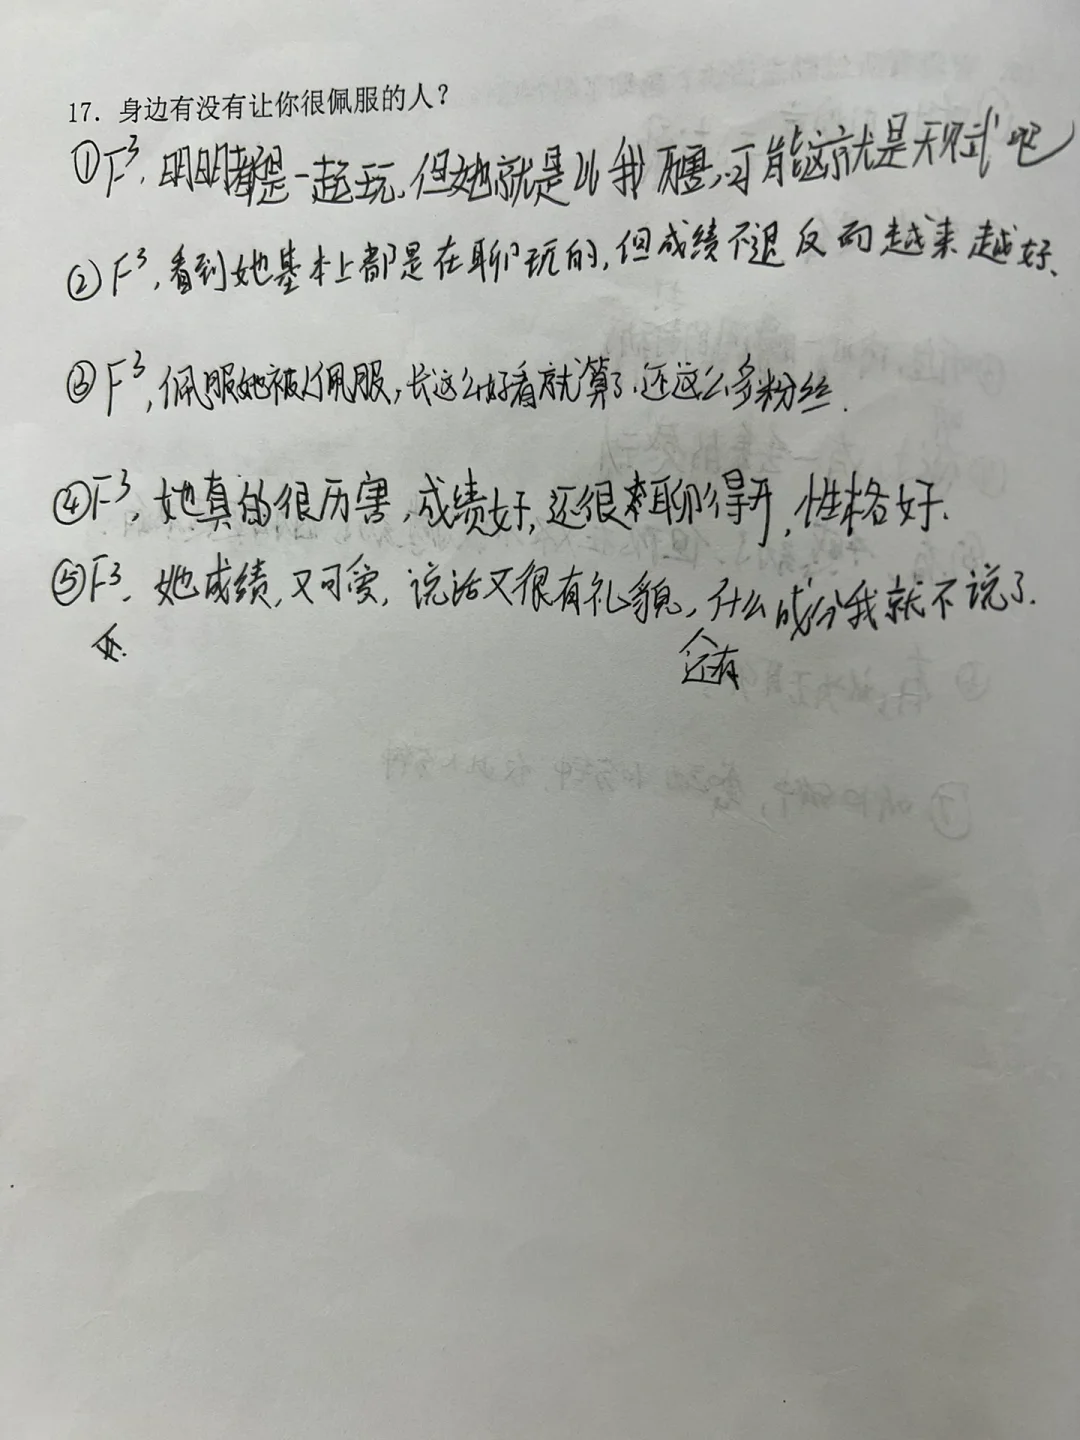 17. 身边有没有让你很佩服的人？
①F³, 明明都是一起玩, 但她就是比我厉害, 可能这就是天赋吧
②F³, 看到她基本上都是在聊玩的, 但成绩不退反而越来越好、
③F³, 佩服她被人佩服, 长这么好看就算了, 还这么多粉丝.
④F³, 她真的很厉害, 成绩好, 还很聊得开, 性格好.
⑤F³, 她成绩, 又可爱, 说话又很有礼貌, 什么成分我就不说了.
还有